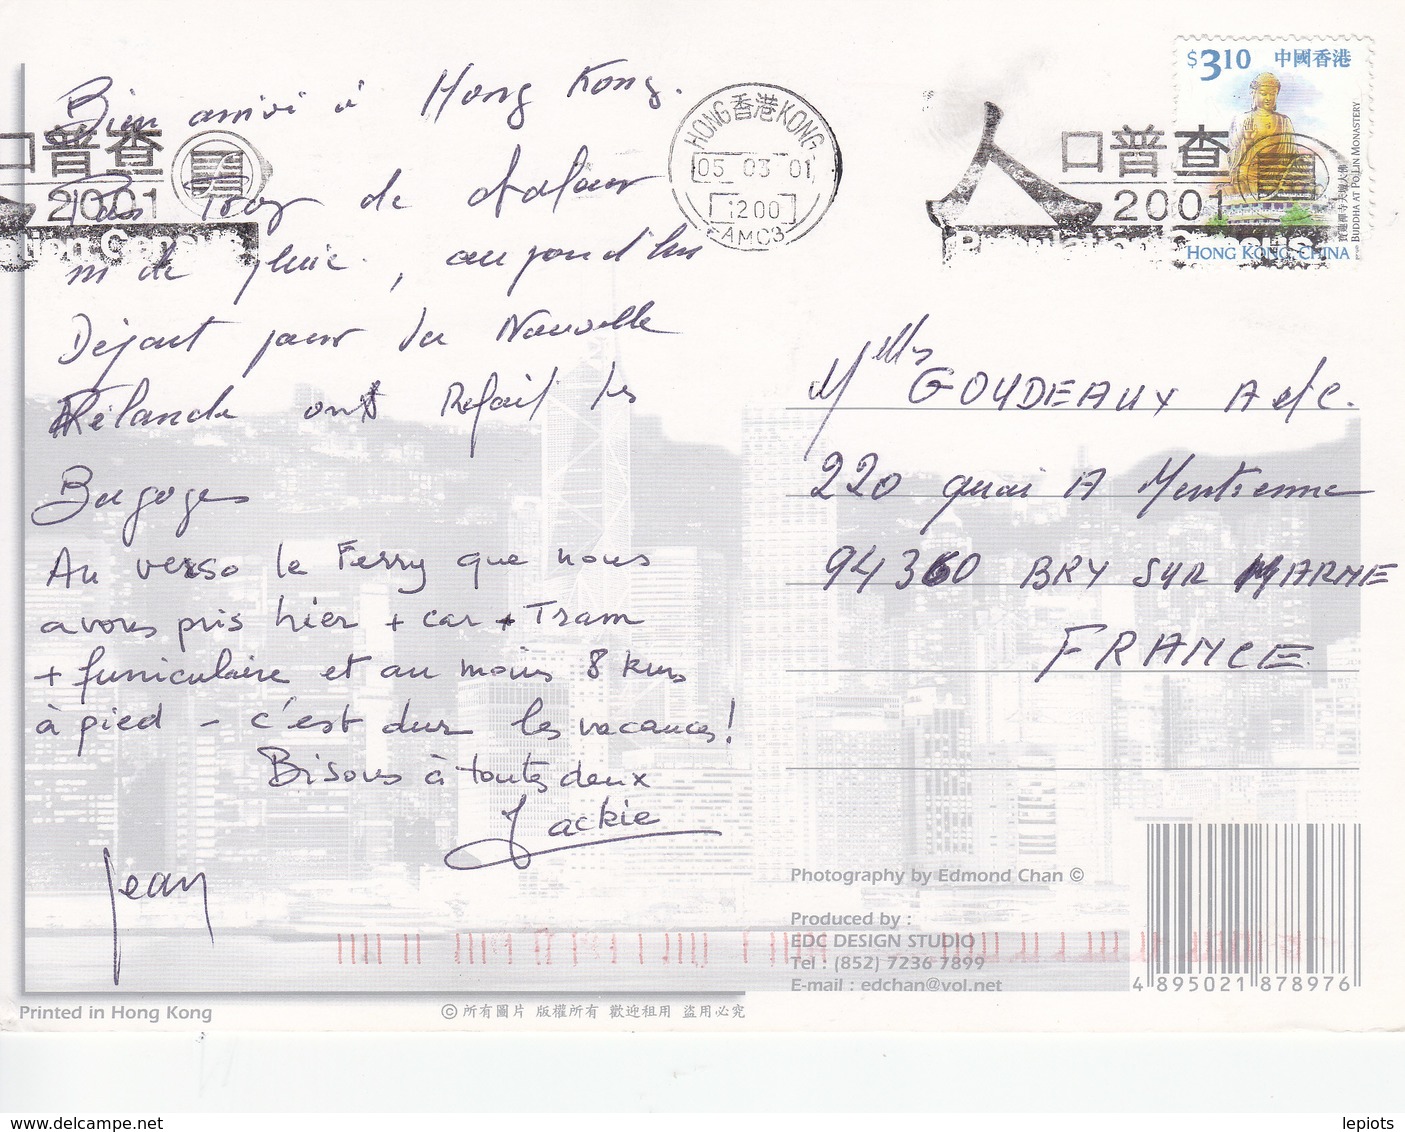 Bien arrivé à Hong Kong.
Pas Trop de chaleur
ni de pluie, aujourd'hui
Départ pour la Nouvelle
Zélande ont Refait les
Bagages
Au verso le Ferry que nous
avons pris hier + car + Tram
+ funiculaire et au moins 8 kms
à pied - c'est dur les vacances!
Bisous à toutes deux
Jackie
Jean
HONG 香港 KONG
05 03 01
1200
AMC3
口普查
2001
人口普查
2001
Population Census
$3.10 中國香港
寶蓮禪寺天壇大佛
BUDDHA AT PO LIN MONASTERY
HONG KONG, CHINA
Melles GOUDEAUX A et C.
220 quai A
94360 BRY SUR MARNE
FRANCE
Photography by Edmond Chan ©
Produced by :
EDC DESIGN STUDIO
Tel : (852) 7236 7899
E-mail : edchan@vol.net
4 895021 878976
Printed in Hong Kong
© 所有圖片 版權所有 歡迎租用 盜用必究
www.delcampe.net
lepiots